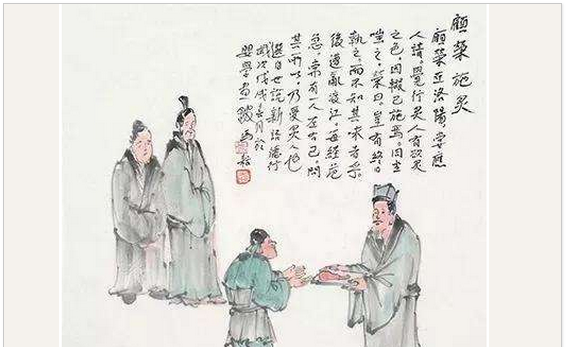 顧榮施炙
顧榮在洛陽嘗應
人請覺行炙人有欲炙
之色因輟己施焉同坐
嗤之榮曰豈有終日
執之而不知其味者乎
後遭亂渡江每經危
急常有一人左右己問
其所以乃受炙人也
選自世說新語德行
歲次戊戌月於